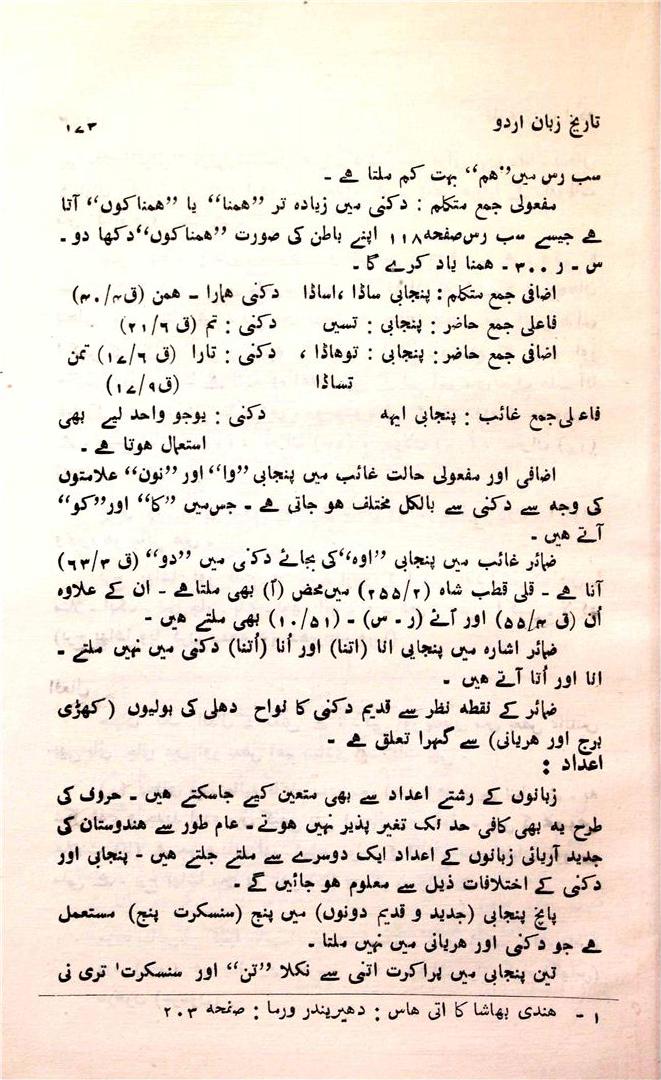 تاریخ زبان اردو ۱۷۳
سب رس میں ”ہم“ بہت کم ملتا ہے ۔
مفعولی جمع متکلم : دکنی میں زیادہ تر ”ھمنا“ یا ”ھمناکوں“ آتا
ہے جیسے سب رس صفحہ ۱۱۸ اپنے باطن کی صورت ”ھمناکوں“ دکھا دو ۔
س ۔ ر ۳۰۰ ۔ ھمنا یاد کرے گا ۔
اضافی جمع متکلم : پنجابی ساڈا ، اساڈا دکنی ھمارا ۔ ھمن (ق ۴۰/۴)
فاعلی جمع حاضر : پنجابی : تسیں دکنی : تم (ق ۲۱/۶)
اضافی جمع حاضر : پنجابی : توھاڈا ، دکنی : تارا (ق ۱۷/۶) تمن
تساڈا (ق ۱۷/۹)
فاعلی جمع غائب : پنجابی ایہہ دکنی : یوجو واحد لیے بھی
استعمال ہوتا ہے ۔
اضافی اور مفعولی حالت غائب میں پنجابی ”وا“ اور ”نون“ علامتوں
کی وجہ سے دکنی سے بالکل مختلف ہو جاتی ہے ۔ جس میں ”کا“ اور ”کو“
آتے ھیں ۔
ضمائر غائب میں پنجابی ”اوہ“ کی بجائے دکنی میں ”دو“ (ق ۶۳/۳)
آنا ہے ۔ قلی قطب شاہ (۲۵۵/۲) میں محض (آ) بھی ملتا ہے ۔ ان کے علاوہ
اُن (ق ۵۵/۴) اور آنے (ر ۔ س) ۔ (۱۰/۵۱) بھی ملتے ھیں ۔
ضمائر اشارہ میں پنجابی انا (اتنا) اور اُنا (اُتنا) دکنی میں نہیں ملتے ۔
انا اور اُتا آتے ھیں ۔
ضمائر کے نقطہ نظر سے قدیم دکنی کا نواح دھلی کی بولیوں (کھڑی
برج اور ھریانی) سے گہرا تعلق ہے ۔
اعداد :
زبانوں کے رشتے اعداد سے بھی متعین کیے جاسکتے ھیں ۔ حروف کی
طرح یہ بھی کافی حد تک تغیر پذیر نہیں ھوتے ۔ عام طور سے ھندوستان کی
جدید آریائی زبانوں کے اعداد ایک دوسرے سے ملتے جلتے ھیں ۔ پنجابی اور
دکنی کے اختلافات ذیل سے معلوم ہو جائیں گے ۔
پانچ پنجابی (جدید و قدیم دونوں) میں پنج (سنسکرت پنج) مستعمل
ہے جو دکنی اور ھریانی میں نہیں ملتا ۔
تین پنجابی میں پراکرت اتنی سے نکلا ”تن“ اور سنسکرت' تری نی
۱ ۔ ھندی بھاشا کا اتی ھاس : دھیریندر ورما : صفحہ ۲۰۳